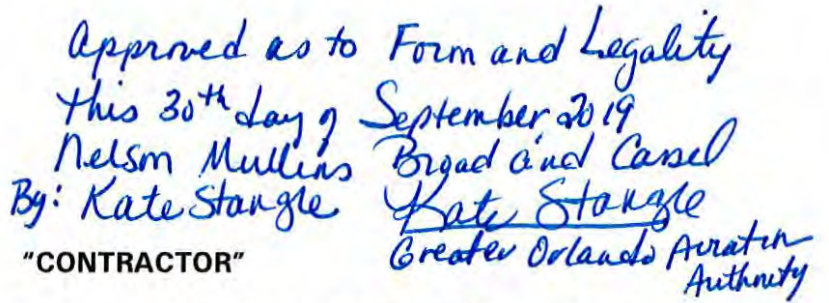 Approved as to Form and Legality
this 30th day of September, 2019
Nelson Mullins Broad and Cassel
By: Kate Stangle Kate Stangle
"CONTRACTOR" Greater Orlando Aviation
Authority